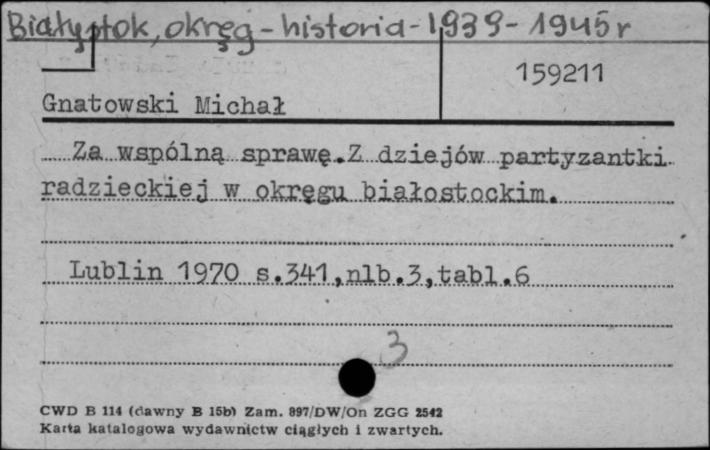 Białystok, okręg - historia - 1939 - 1945 r
159211
Gnatowski Michał
Za wspólną sprawę.Z dziejów partyzantki
radzieckiej w okręgu białostockim.
Lublin 1970 s.341,nlb.3,tabl.6
3
CWD B 114 (dawny B 15b) Zam. 897/DW/On ZGG 2542
Karta katalogowa wydawnictw ciągłych i zwartych.